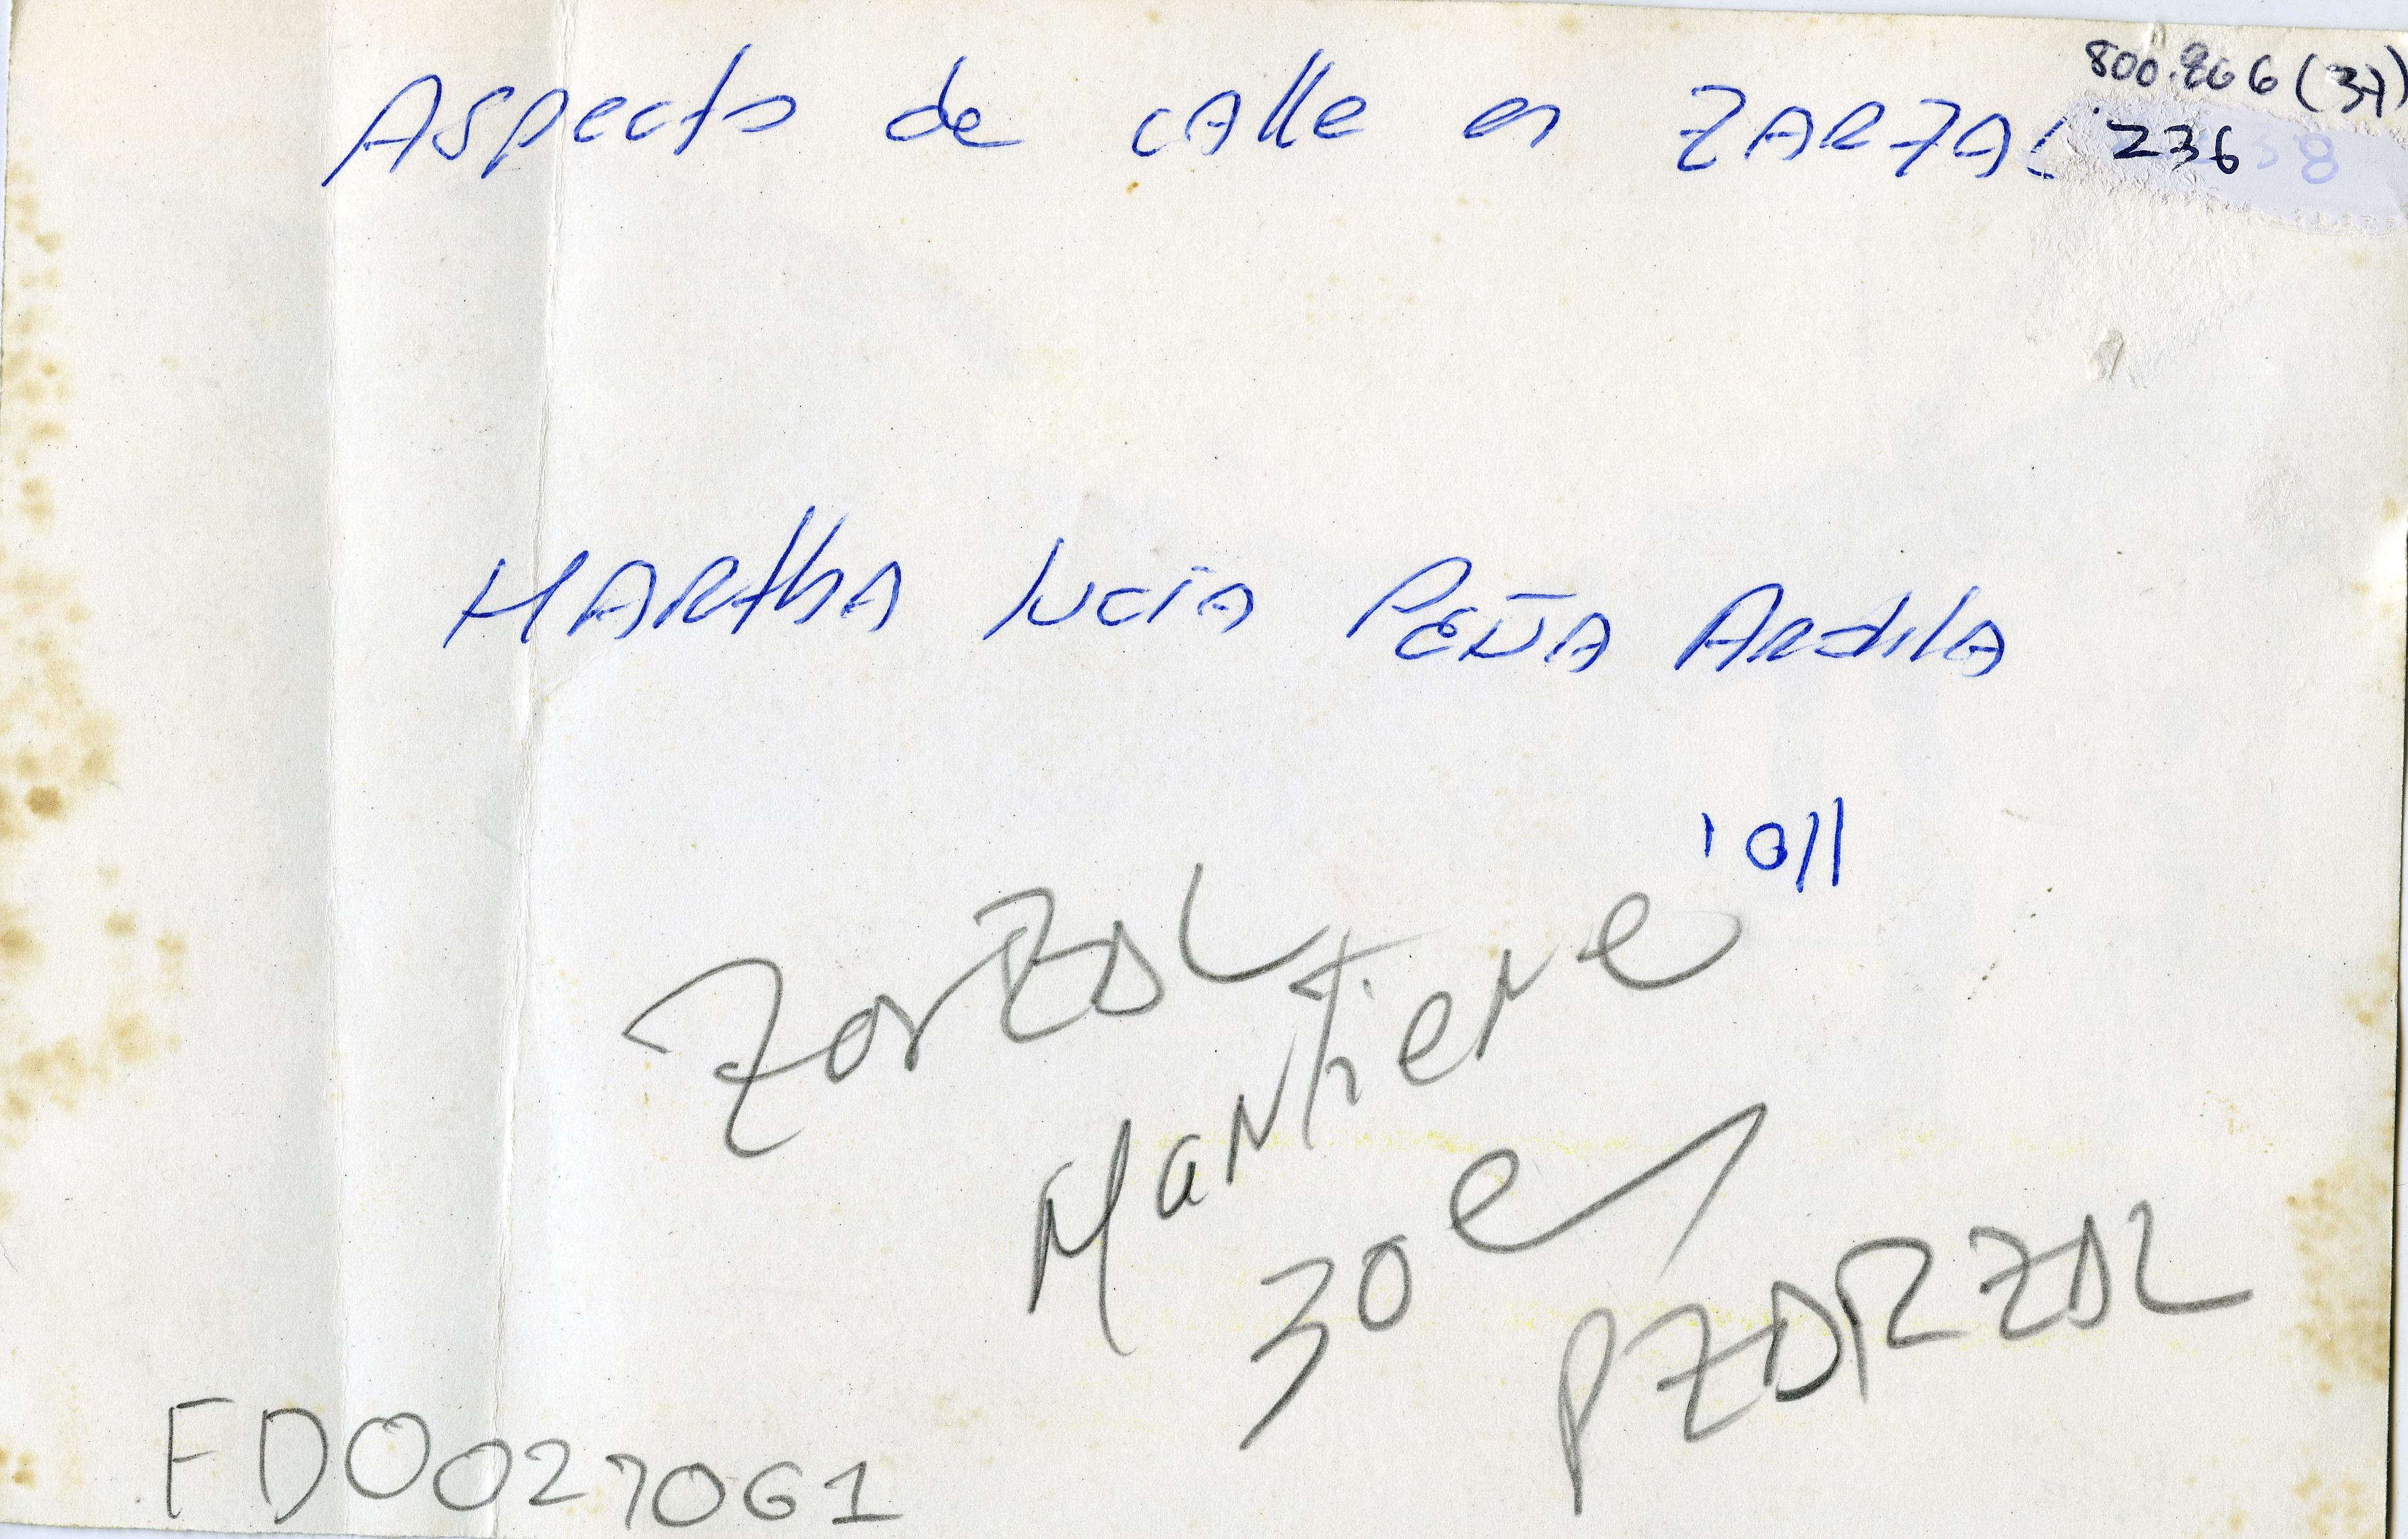 800.266 (37)
Aspecto de calle en ZARZAL
236
38
MARthA lucía PEÑA Ardila
' 011
ZarZAL
Mantiene
30 e/
PZARZAL
FD0027061